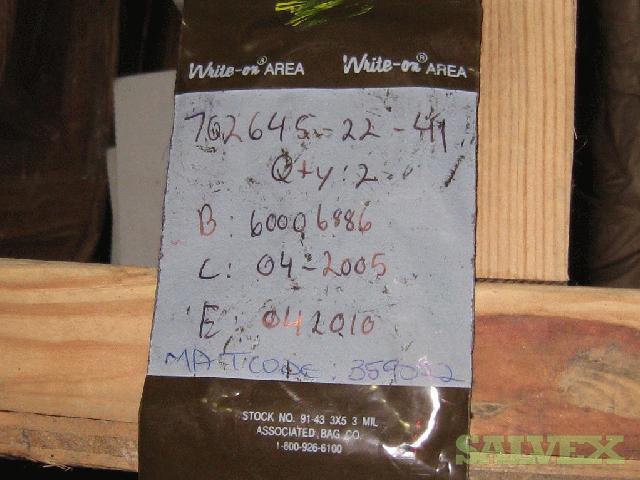 Write-on® AREA Write-on® AREA
702645-22-411
Qty: 2
B: 60006886
C: 04-2005
E: 042010
MATCODE: 359052
STOCK NO. 91-43 3X5 3 MIL
ASSOCIATED BAG CO.
1-800-926-6100
SALVEX